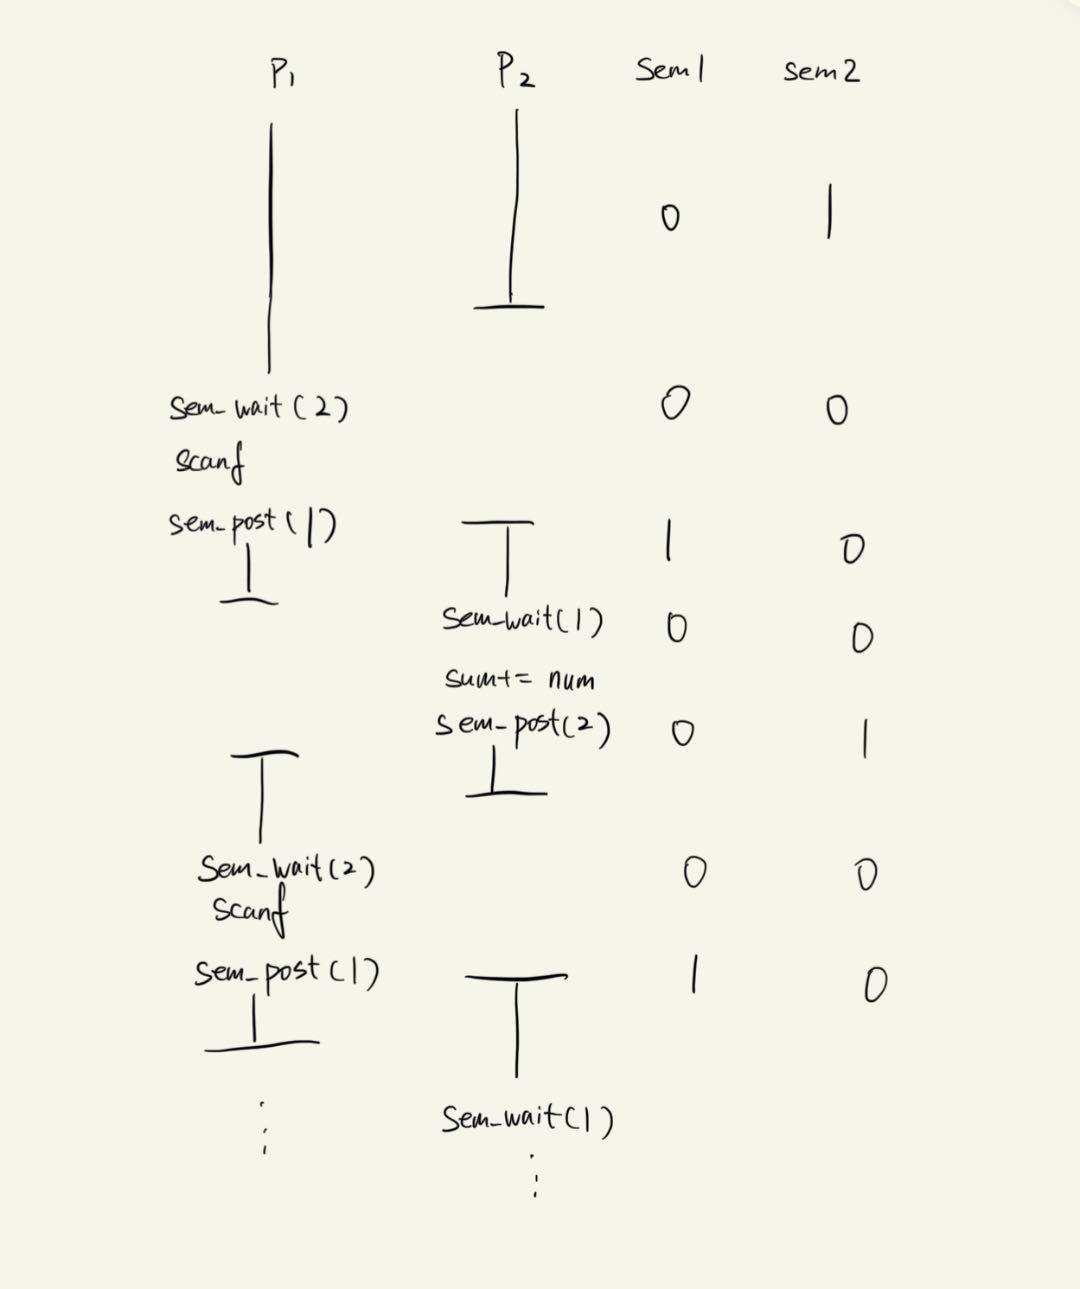 P1 P2 Sem1 sem2
0 1
sem_wait(2) 0 0
scanf
sem_post(1) 1 0
sem_wait(1) 0 0
sum+= num
sem_post(2) 0 1
sem_wait(2) 0 0
scanf
sem_post(1) 1 0
sem_wait(1)